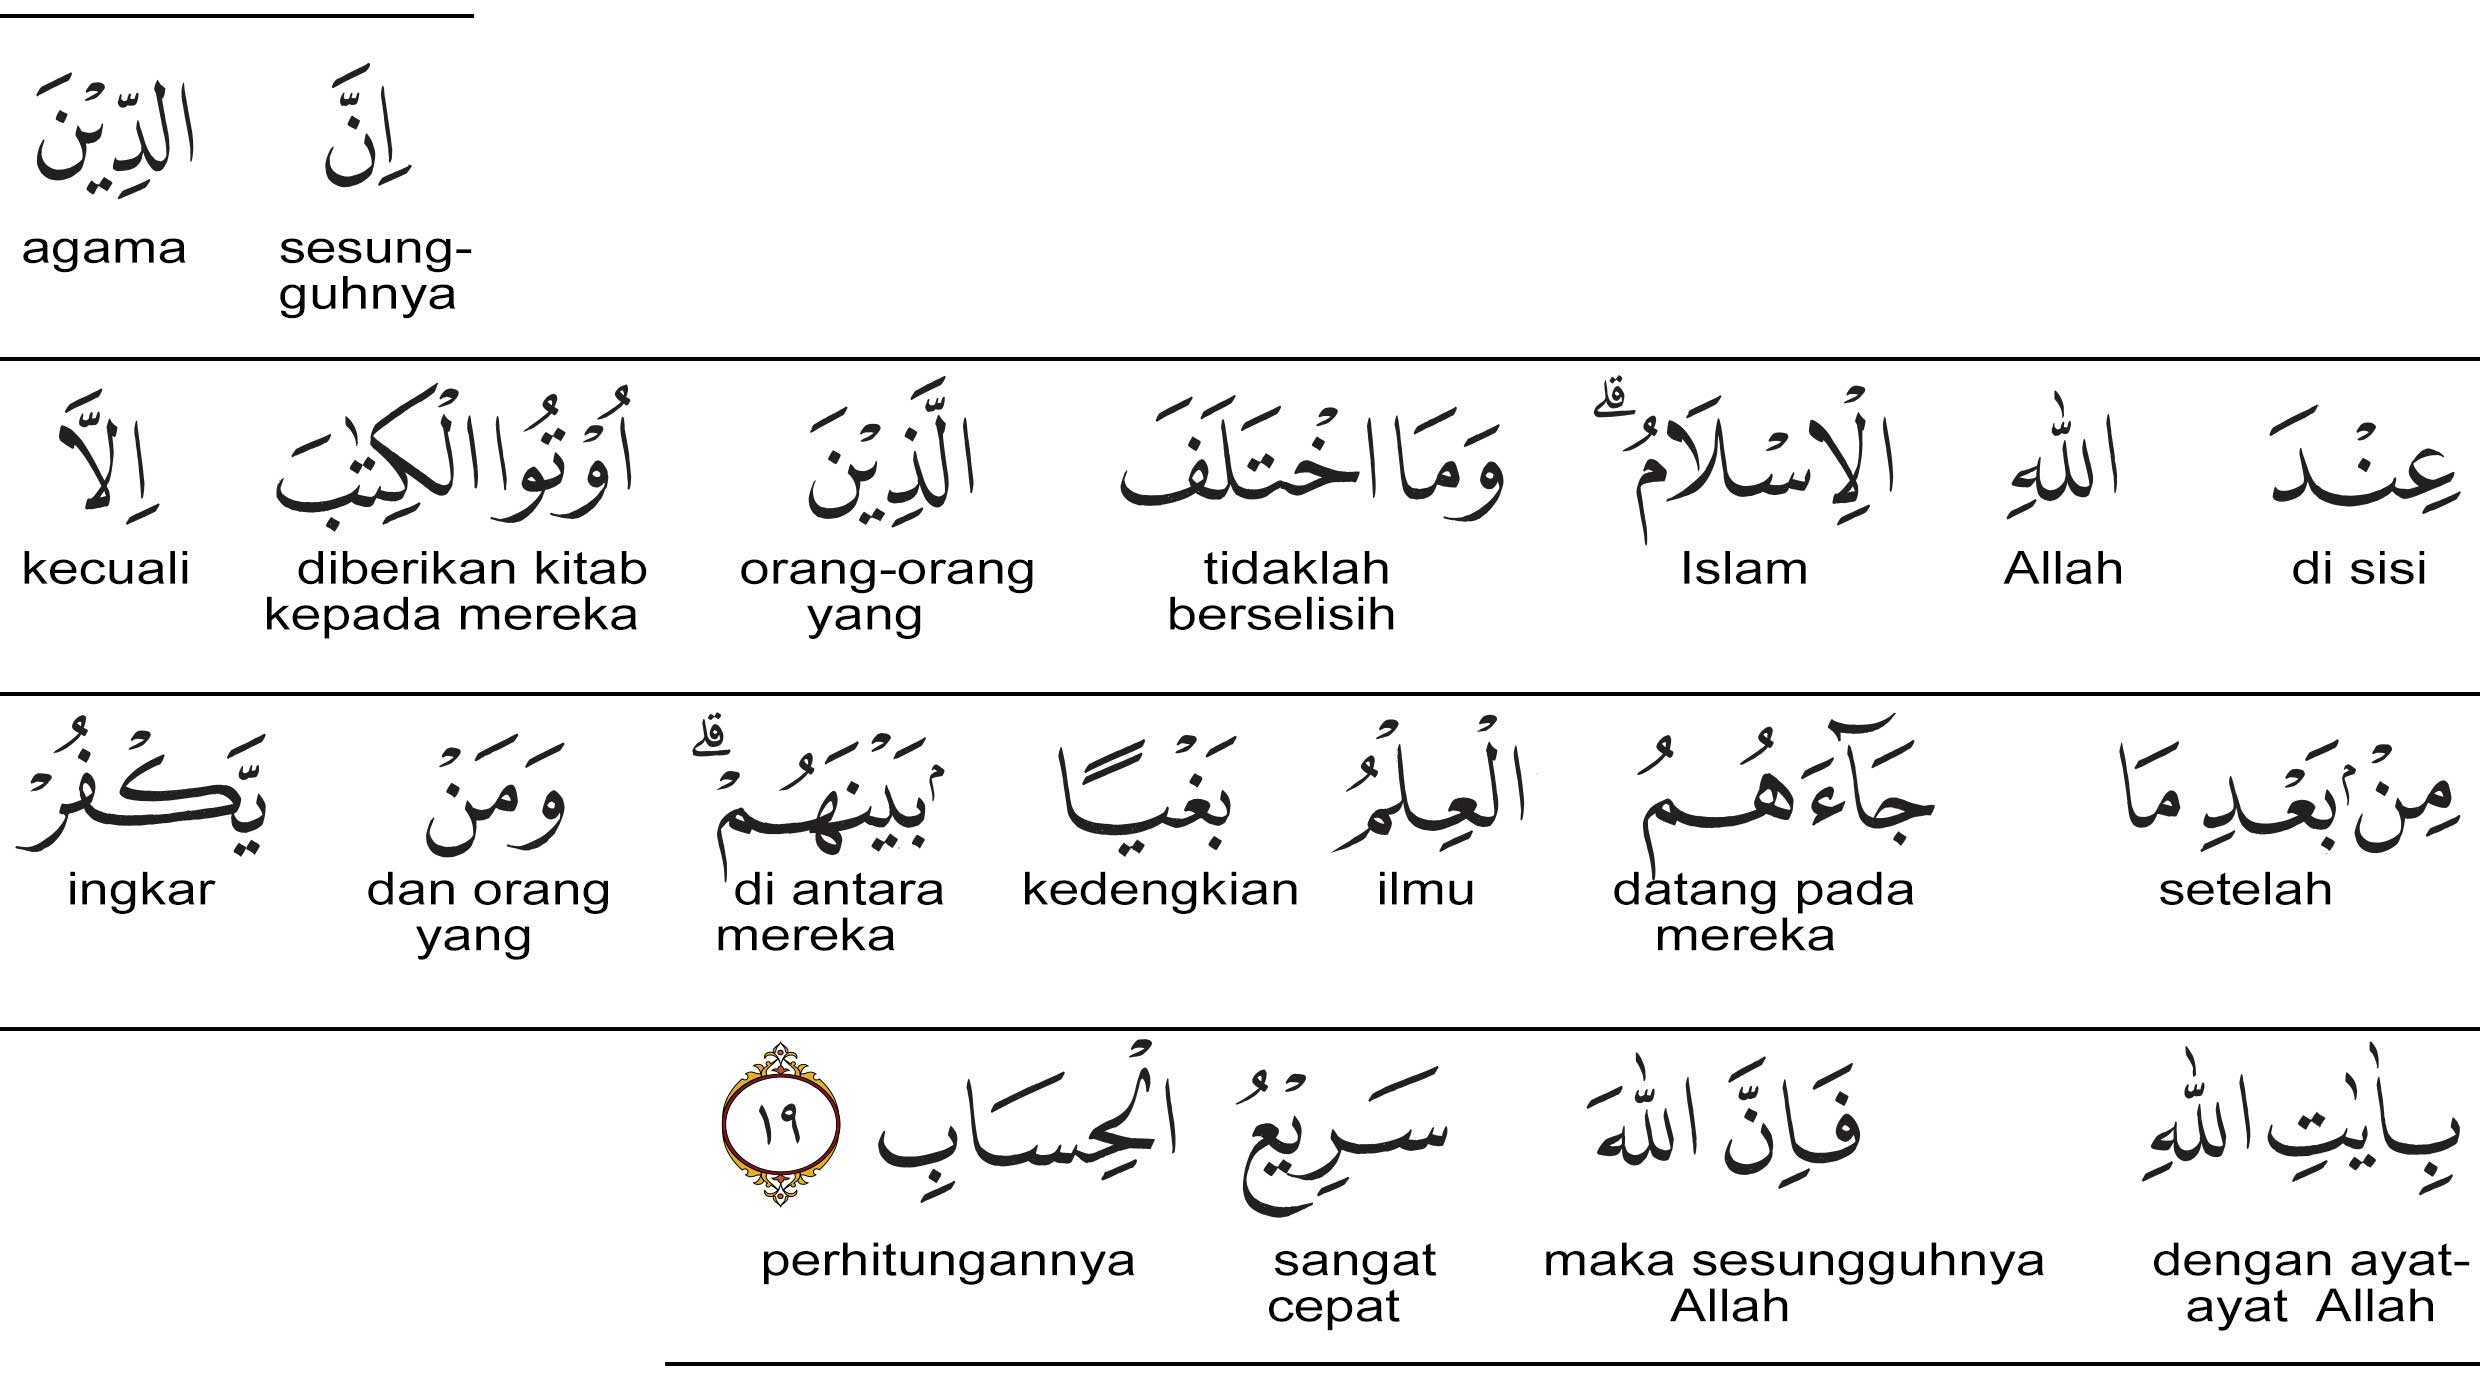 اِنَّ الدِّيْنَ
sesung- agama
guhnya
عِنْدَ اللّٰهِ الْاِسْلَامُ ۗ وَمَا اخْتَلَفَ الَّذِيْنَ اُوْتُوا الْكِتٰبَ اِلَّا
di sisi Allah Islam tidaklah orang-orang diberikan kitab kecuali
berselisih yang kepada mereka
مِنْۢ بَعْدِ مَا جَاۤءَهُمُ الْعِلْمُ بَغْيًا ۢ بَيْنَهُمْ ۗ وَمَنْ يَّكْفُرْ
setelah datang pada ilmu kedengkian di antara dan orang ingkar
mereka mereka yang
بِاٰيٰتِ اللّٰهِ فَاِنَّ اللّٰهَ سَرِيْعُ الْحِسَابِ ١٩
dengan ayat- maka sesungguhnya sangat perhitungannya
ayat Allah Allah cepat